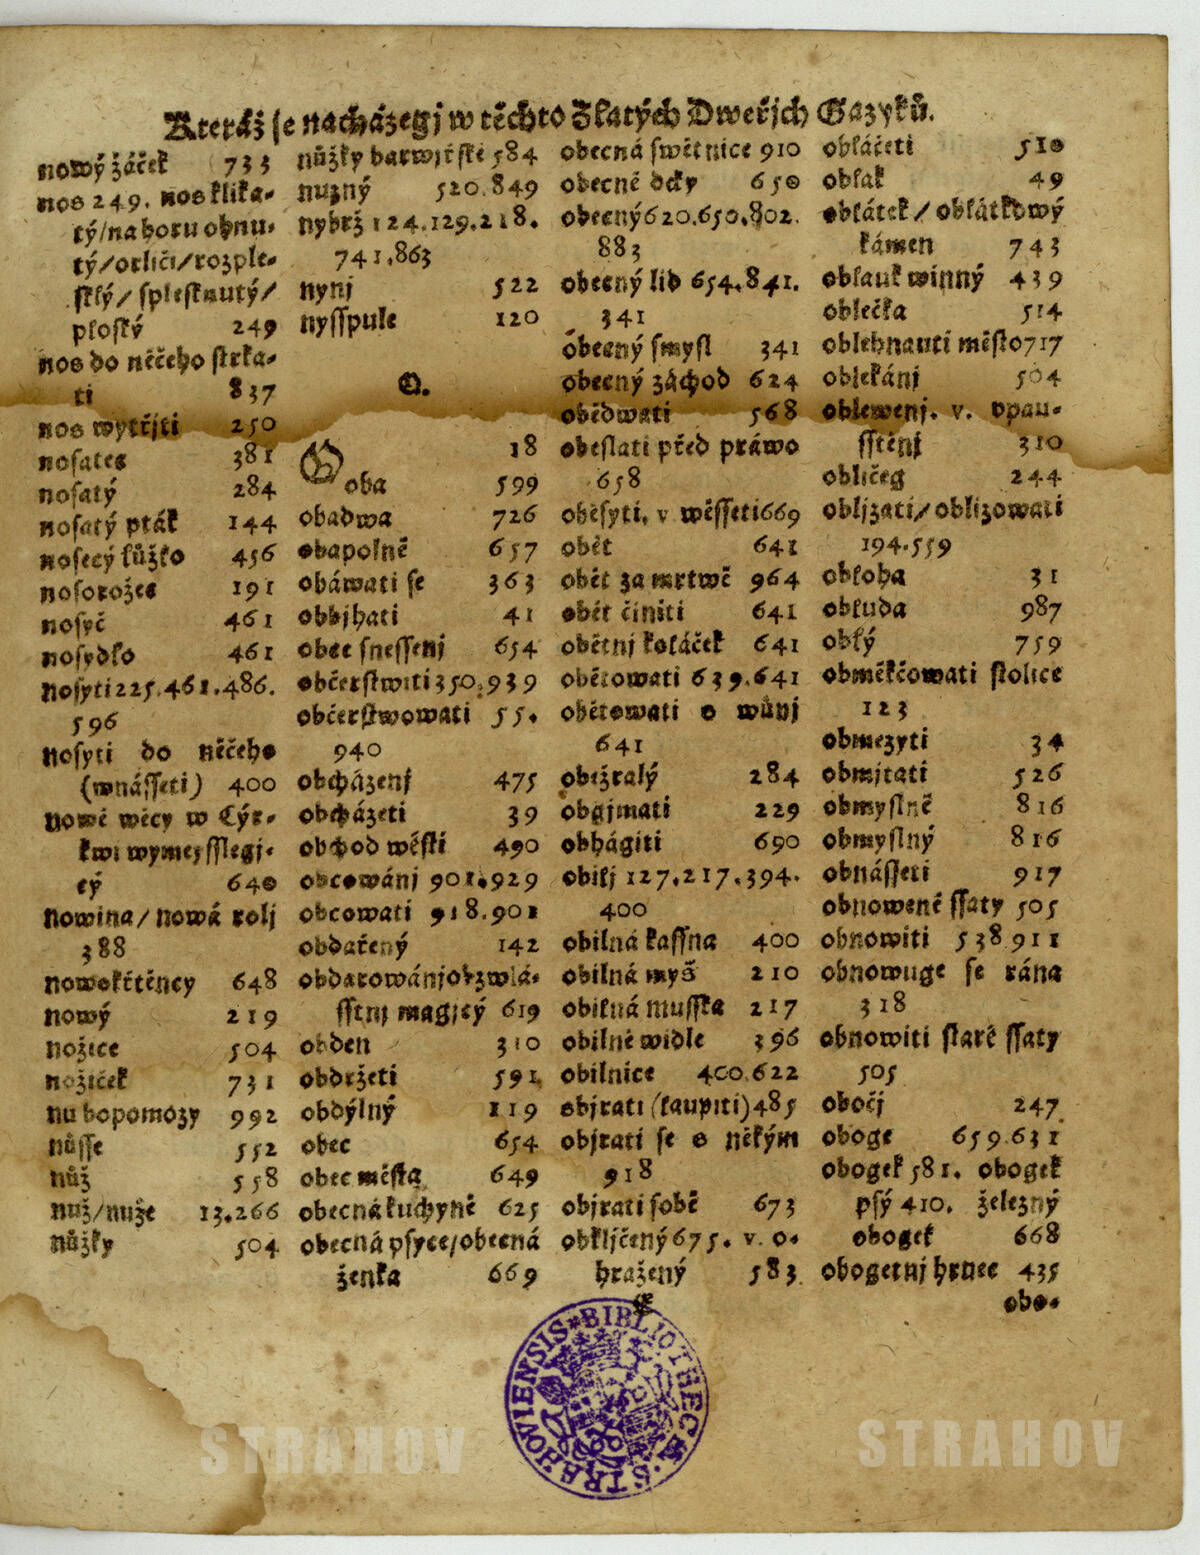 Kteráž se nacházegj w těchto Zlatých Dweřjch Gazyků.
nowý žáček 733
nos 249. nos klika-
tý/nahoru ohnu-
tý/orličí/rozple-
sklý/ splesknutý/
ploský 249
nos do něčeho strka-
ti 837
nos wytřjti 250
nosatec 381
nosatý 284
nosatý pták 144
nosecý lůžko 456
nosorožec 191
nosyč 461
nosydlo 461
nosyti 225.461.486.
596
nosyti do něčeho
(wnásseti) 400
nowé wěcy w Cýr-
kwi wymeysslegj-
cý 640
nowina/ nowá rolj
388
nowokřtěncy 648
nowý 219
nožice 504
nožiček 731
nu bopomozy 992
nůsse 552
nůž 558
nuž/nuže 13.266
nůžky 504
nůžky barwjřské 584
nuzný 520.849
nybrž 124.129.218.
741.863
nynj 522
nysspule 120
O.
O 18
oba 599
obadwa 726
obapolně 657
obáwati se 363
obbjhati 41
obec snessenj 654
občerstwiti 350.939
občerstwowati 55.
940
obcházenj 475
obcházeti 39
obchod wésti 490
obcowánj 901.929
obcowati 918.901
obdařený 142
obdarowánj obzwlá-
sstnj magjcý 619
obden 310
obdržeti 591
obdýlný 119
obec 654
obec města 649
obecná kuchyně 625
obecná psyce/obecná
ženka 669
obecná swětnice 910
obecné dcky 650
obecný 620.650.802.
883
obecný lid 654.841.
341
obecný smysl 341
obecný záchod 624
obědwati 568
obeslati před práwo
658
oběsyti, v wěsseti 669
obět 641
obět za mrtwé 964
obět činiti 641
obětnj koláček 641
obětowati 639.641
obětowati o wůnj
641
obežralý 284
obgjmati 229
obhágiti 690
obilj 127.217.394.
400
obilná kassna 400
obilná myš 210
obilná musska 217
obilné widle 396
obilnice 400.622
objrati (kaupiti) 485
objrati se s někým
918
objrati sobě 673
obkljčený 675. v. o-
hražený 583
obláčeti 510
oblak 49
oblátek/ oblátkowý
kámen 743
oblauk winný 439
oblečka 514
oblehnauti město 717
oblekánj 504
oblewenj. v. vpau-
sstěnj 310
obličeg 244
obljzati/oblizowati
194.559
obloha 31
obluda 987
oblý 759
obměkčowati stolice
123
obmezyti 34
obmjtati 526
obmyslně 816
obmyslný 816
obnásseti 917
obnowené ssaty 505
obnowiti 538 911
obnowuge se rána
318
obnowiti staré ssaty
505
obočj 247
oboge 659.631
obogek 581. obogek
psý 410. železný
obogek 668
obogetnj hrnec 435
obo-
STRAHOVIENSIS * BIBLIOTHECA *
STRAHOV
STRAHOV